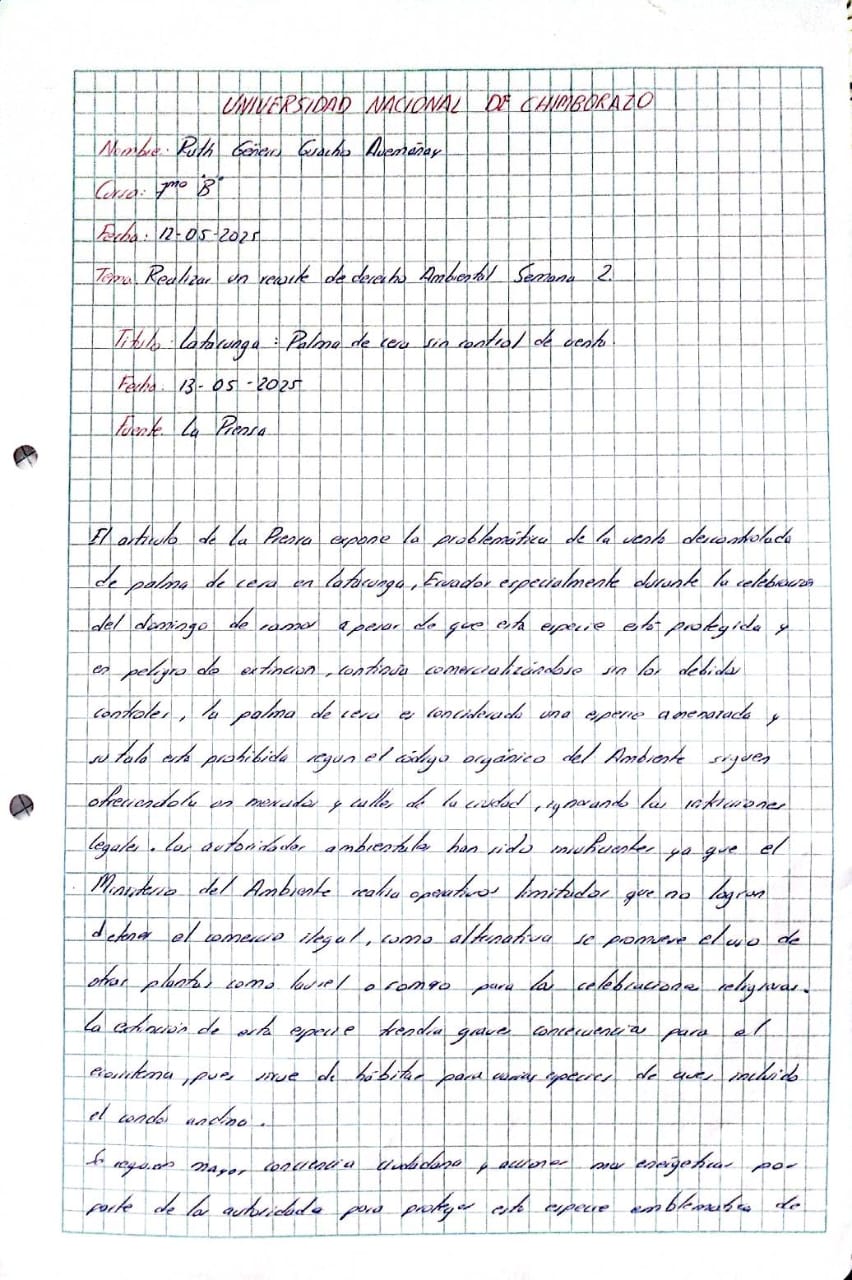 UNIVERSIDAD NACIONAL DE CHIMBORAZO
Nombre: Ruth Génesis Guacho Avemañay
Curso: 7mo "B"
Fecha: 12-05-2025
Tema: Realizar un recorte de derecho Ambiental Semana 2.
Título: Latacunga: Palma de cera sin control de venta.
Fecha: 13-05-2025
Fuente: La Prensa
El articulo de la Prensa expone la problemática de la venta descontrolada
de palma de cera en Latacunga, Ecuador especialmente durante la celebracion
del domingo de ramos a pesar de que esta especie está protegida y
en peligro de extincion, continúa comercializándose sin los debidos
controles, la palma de cera es considerada una especie amenazada y
su tala esta prohibida segun el código orgánico del Ambiente siguen
ofreciendola en mercados y calles de la ciudad, ignorando las
legales. Las autoridades ambientales han sido insuficientes ya que el
Ministerio del Ambiente realiza operativos limitados que no logran
detener el comercio ilegal, como alternativa se promueve el uso de
otras plantas como laurel o romero para las celebraciones religiosas.
La extincion de esta especie tendria graves consecuencias para el
ecosistema, pues sirve de hábitat para varias especies de aves incluido
el condor andino.
Se requiere mayor conciencia ciudadana y acciones mas energeticas por
parte de las autoridades para proteger esta especie emblematica de